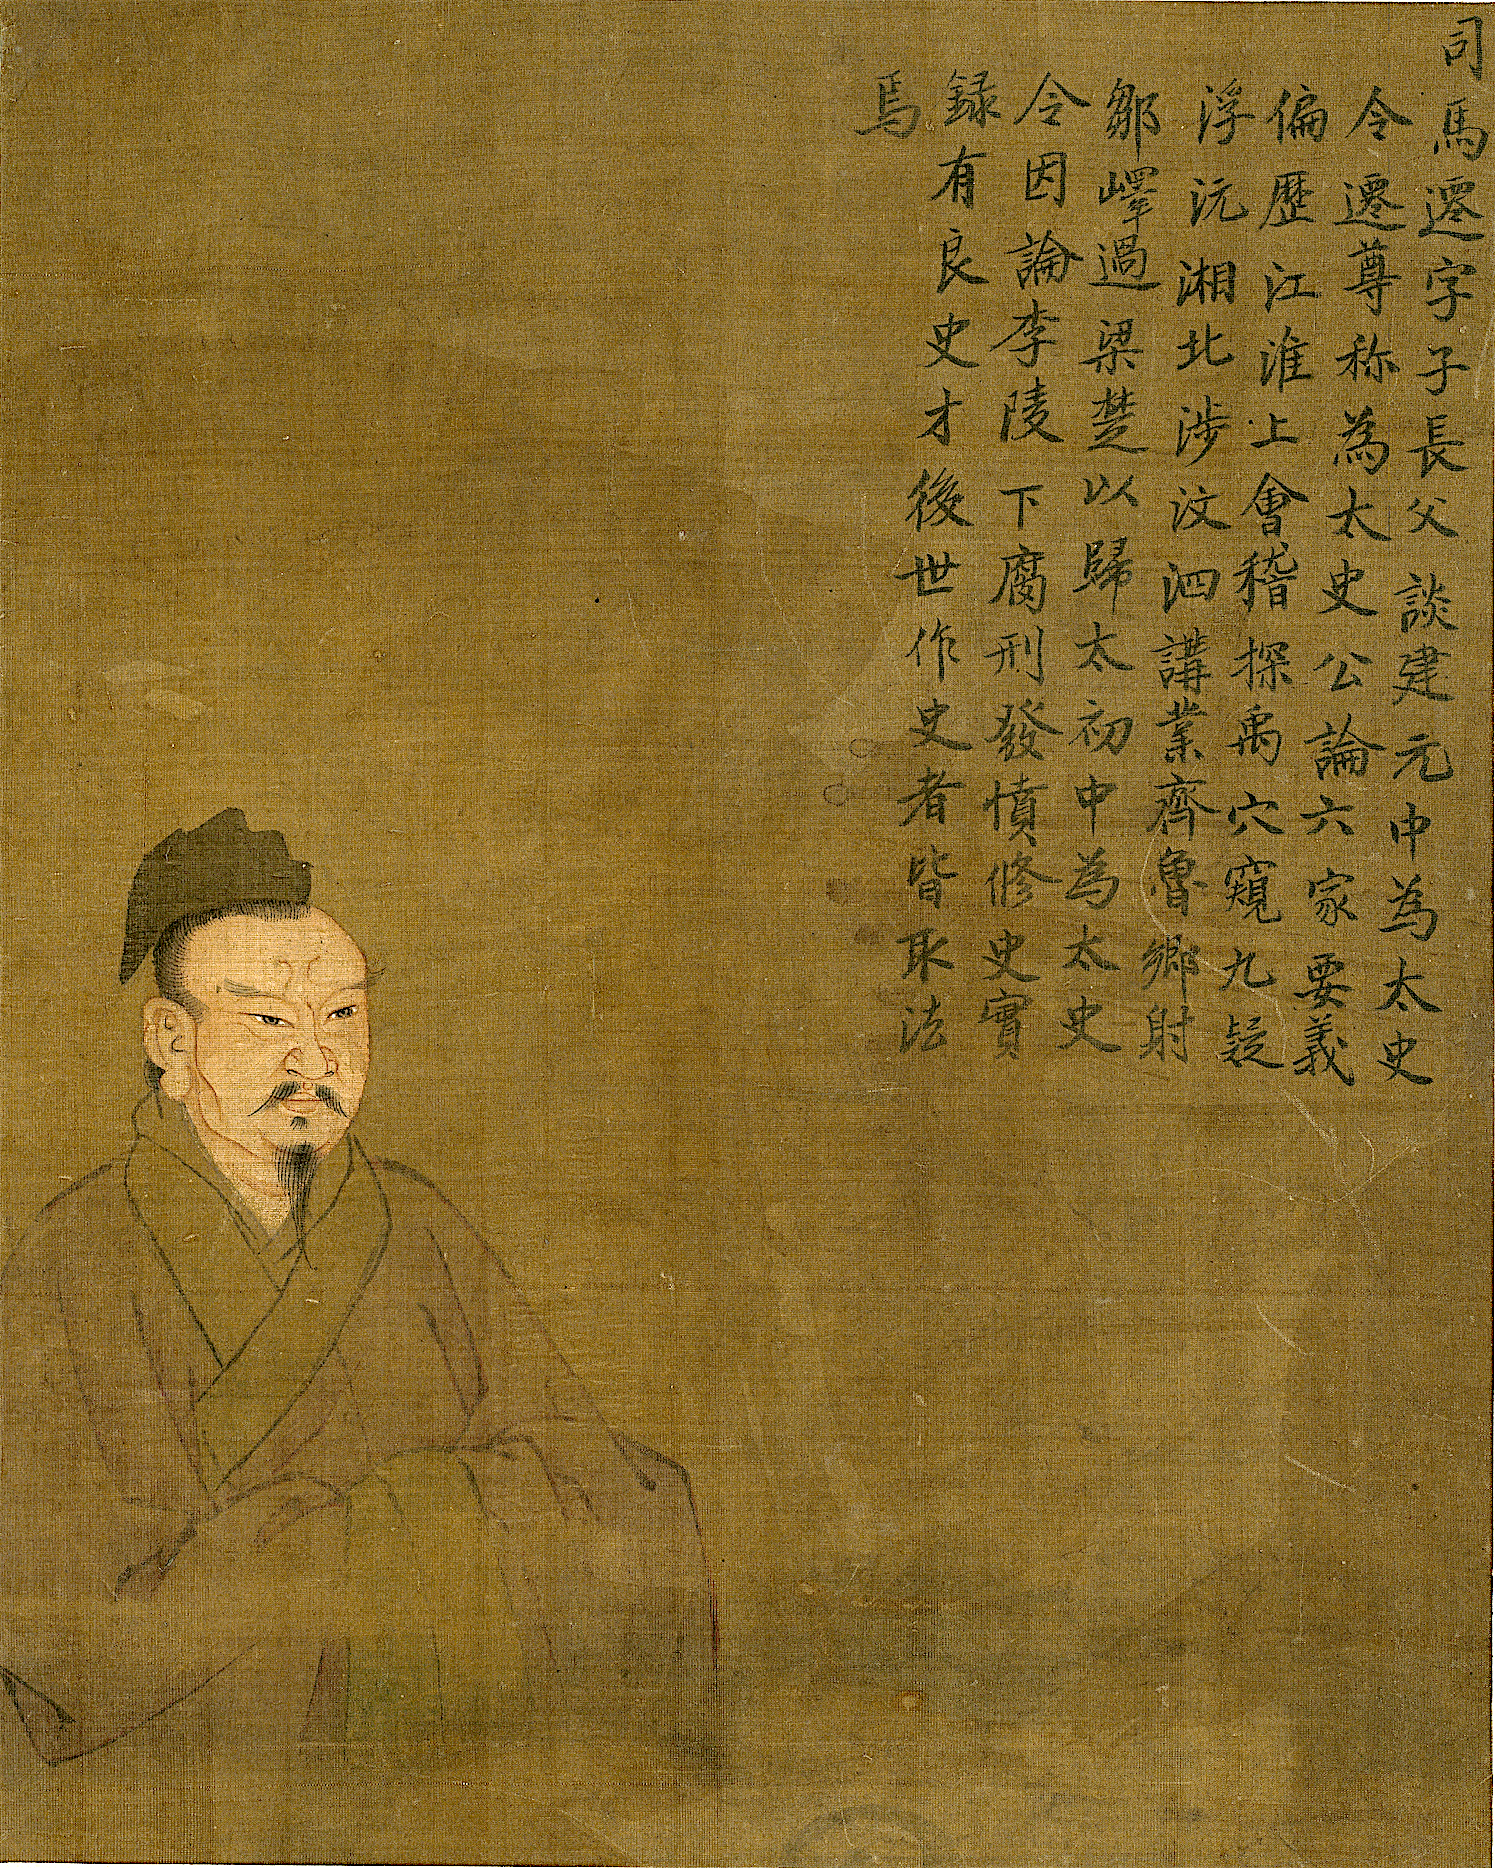 司馬遷字子長父談建元中為太史
令遷尊称為太史公論六家要義
偏歴江淮上會稽探禹穴窺九疑
浮沅湘北涉汶泗講業齊魯鄉射
鄒嶧過梁楚以歸太初中為太史
令因論李陵下腐刑發憤修史實
録有良史才後世作史者皆取法
焉